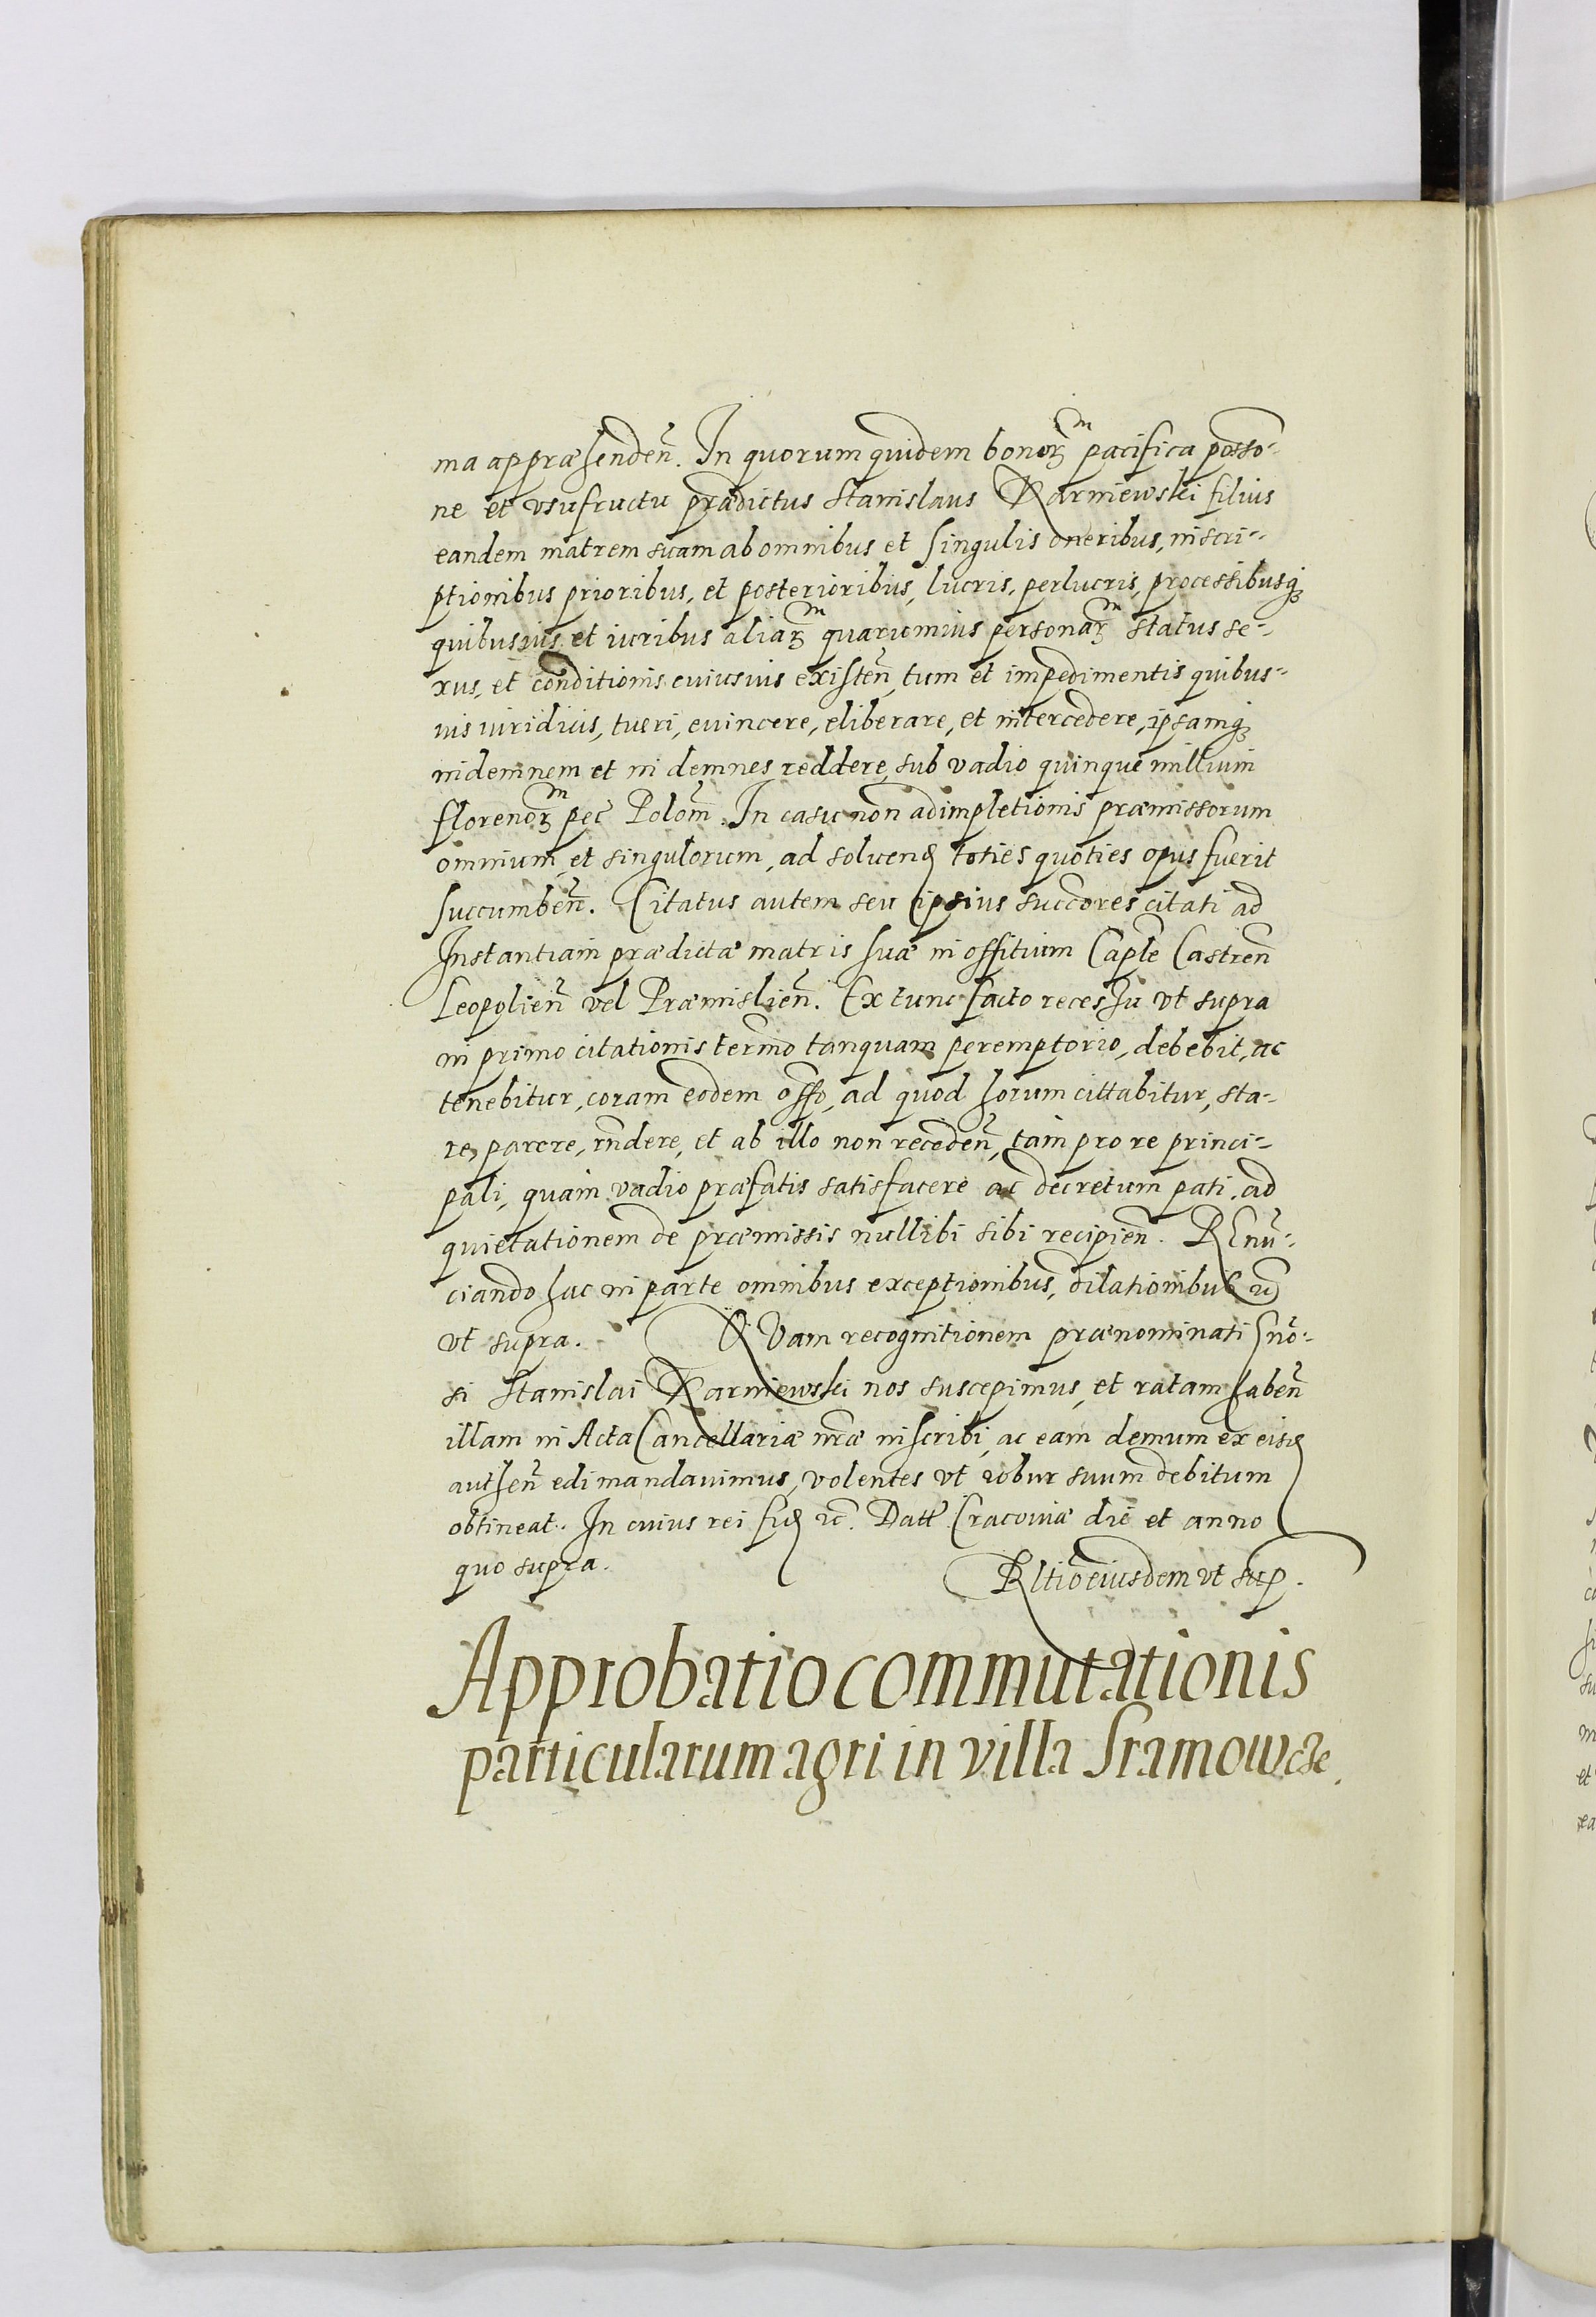 ma appræhenden̄. In quorum quidem bonorꝫ pacifica posso-
ne et vsufructu prædictus Stanislaus Karniewski filius
eandem matrem suam ab omnibus et singulis oneribus, inscri-
ptionibus prioribus, et posterioribus, lucris, perlucris, processibusqꝫ
quibusuis et iuribus aliarꝫ quarumuis personarꝫ status se-
xus, et conditionis cuiusuis existen̄, tum et impedimentis quibus-
uis iuridicis, tueri, euincere, eliberare, et intercedere, ipsamqꝫ
indemnem et indemnes reddere, sub vadio quinque millium
florenorꝫ pec̄ Polon̄. In casu non adimpletionis præmissorum
omnium, et singulorum, ad soluend toties quoties opus fuerit
succumben̄. Citatus autem seu ipsius succores citati ad
Instantiam prædictæ matris suæ in offitium Caple Castren̄
Leopolien̄ vel Præmislien̄. Ex tunc facto recessu vt supra
in primo citationis termo tanquam peremptorio, debebit, ac
tenebitur, coram eodem offo, ad quod horum cittabitur, sta-
re, parere, rndere, et ab illo non receden̄, tam pro re princi-
pali, quam vadio præfatis satisfacere ac decretum pati, ad
quietationem de præmissis nullibi sibi recipien̄. REnū-
ciando hac in parte omnibus exceptionibus, dilationibus ꝛc̄
vt supra. QVam recognitionem prænominati Gnō-
si Stanislai Karniewski nos suscepimus, et ratam haben̄
illam in Acta Cancellariæ nr̄æ inscribi, ac eam demum ex eisd
authen̄ edi mandauimus, volentes vt robur suum debitum
obtineat. In cuius rei fid ꝛc̄. Datt Cracouiæ die et anno
quo supra.
Rltio eiusdem vt sup.
Approbatio commutationis
particularum agri in villa Sramowcze.